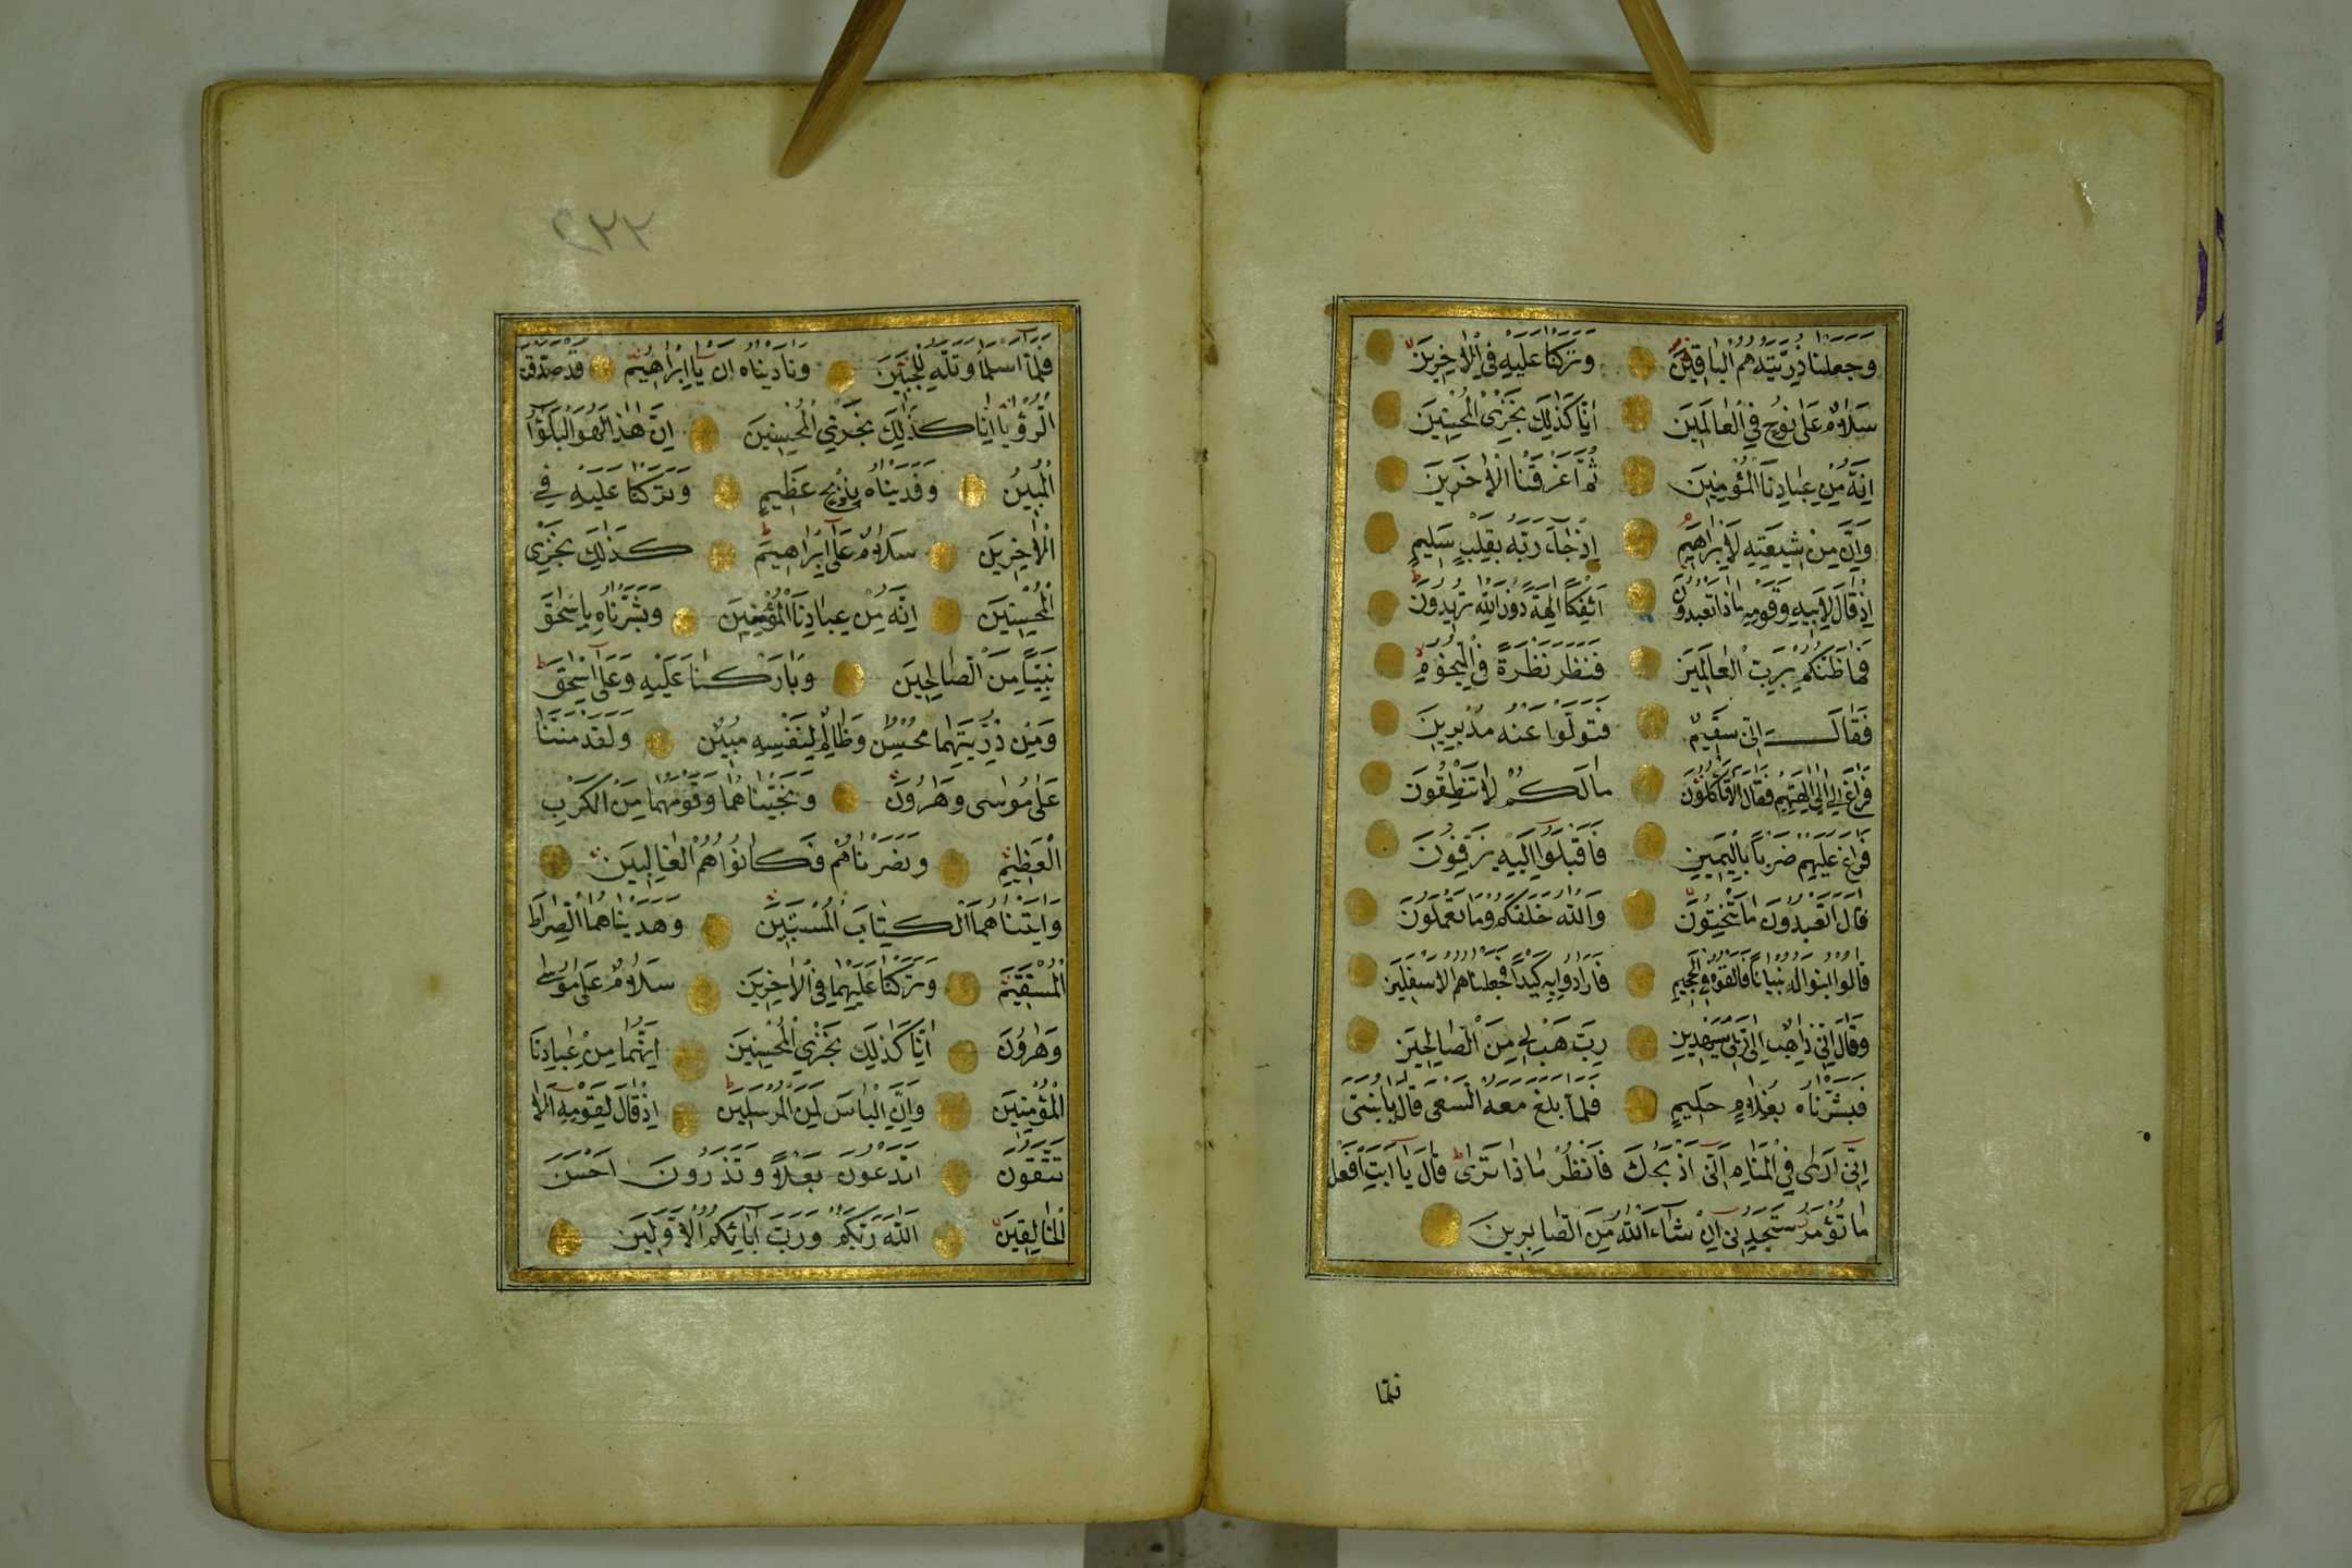 وَجَعَلْنَا ذُرِّيَّتَهُ هُمُ الْبَاقِينَ وَتَرَكْنَا عَلَيْهِ فِي الْاٰخِرِينَ
سَلَامٌ عَلٰى نُوحٍ فِي الْعَالَمِينَ اِنَّا كَذٰلِكَ نَجْزِي الْمُحْسِنِينَ
اِنَّهُ مِنْ عِبَادِنَا الْمُؤْمِنِينَ ثُمَّ اَغْرَقْنَا الْاٰخَرِينَ
وَاِنَّ مِنْ شِيعَتِهِ لَاِبْرَاهِيمَ اِذْ جَاءَ رَبَّهُ بِقَلْبٍ سَلِيمٍ
اِذْ قَالَ لِاَبِيهِ وَقَوْمِهِ مَاذَا تَعْبُدُونَ اَئِفْكًا اٰلِهَةً دُونَ اللّٰهِ تُرِيدُونَ
فَمَا ظَنُّكُمْ بِرَبِّ الْعَالَمِينَ فَنَظَرَ نَظْرَةً فِي النُّجُومِ
فَقَالَ اِنِّي سَقِيمٌ فَتَوَلَّوْا عَنْهُ مُدْبِرِينَ
فَرَاغَ اِلٰى اٰلِهَتِهِمْ فَقَالَ اَلَا تَأْكُلُونَ مَالَكُمْ لَا تَنْطِقُونَ
فَرَاغَ عَلَيْهِمْ ضَرْبًا بِالْيَمِينِ فَاَقْبَلُوا اِلَيْهِ يَزِفُّونَ
قَالَ اَتَعْبُدُونَ مَا تَنْحِتُونَ وَاللّٰهُ خَلَقَكُمْ وَمَا تَعْمَلُونَ
قَالُوا ابْنُوا لَهُ بُنْيَانًا فَاَلْقُوهُ فِي الْجَحِيمِ فَاَرَادُوا بِهِ كَيْدًا فَجَعَلْنَاهُمُ الْاَسْفَلِينَ
وَقَالَ اِنِّي ذَاهِبٌ اِلٰى رَبِّي سَيَهْدِينِ رَبِّ هَبْ لِي مِنَ الصَّالِحِينَ
فَبَشَّرْنَاهُ بِغُلَامٍ حَلِيمٍ فَلَمَّا بَلَغَ مَعَهُ السَّعْيَ قَالَ يَا بُنَيَّ
اِنِّي اَرٰى فِي الْمَنَامِ اَنِّي اَذْبَحُكَ فَانْظُرْ مَاذَا تَرٰى قَالَ يَا اَبَتِ افْعَلْ
مَا تُؤْمَرُ سَتَجِدُنِي اِنْ شَاءَ اللّٰهُ مِنَ الصَّابِرِينَ
فلمّا
٢٢٢
فَلَمَّا اَسْلَمَا وَتَلَّهُ لِلْجَبِينِ وَنَادَيْنَاهُ اَنْ يَا اِبْرَاهِيمُ قَدْ صَدَّقْتَ
الرُّؤْيَا اِنَّا كَذٰلِكَ نَجْزِي الْمُحْسِنِينَ اِنَّ هٰذَا لَهُوَ الْبَلٰؤُا
الْمُبِينُ وَفَدَيْنَاهُ بِذِبْحٍ عَظِيمٍ وَتَرَكْنَا عَلَيْهِ فِي
الْاٰخِرِينَ سَلَامٌ عَلٰى اِبْرَاهِيمَ كَذٰلِكَ نَجْزِي
الْمُحْسِنِينَ اِنَّهُ مِنْ عِبَادِنَا الْمُؤْمِنِينَ وَبَشَّرْنَاهُ بِاِسْحٰقَ
نَبِيًّا مِنَ الصَّالِحِينَ وَبَارَكْنَا عَلَيْهِ وَعَلٰى اِسْحٰقَ
وَمِنْ ذُرِّيَّتِهِمَا مُحْسِنٌ وَظَالِمٌ لِنَفْسِهِ مُبِينٌ وَلَقَدْ مَنَنَّا
عَلٰى مُوسٰى وَهٰرُونَ وَنَجَّيْنَاهُمَا وَقَوْمَهُمَا مِنَ الْكَرْبِ
الْعَظِيمِ وَنَصَرْنَاهُمْ فَكَانُوا هُمُ الْغَالِبِينَ
وَاٰتَيْنَاهُمَا الْكِتَابَ الْمُسْتَبِينَ وَهَدَيْنَاهُمَا الصِّرَاطَ
الْمُسْتَقِيمَ وَتَرَكْنَا عَلَيْهِمَا فِي الْاٰخِرِينَ سَلَامٌ عَلٰى مُوسٰى
وَهٰرُونَ اِنَّا كَذٰلِكَ نَجْزِي الْمُحْسِنِينَ اِنَّهُمَا مِنْ عِبَادِنَا
الْمُؤْمِنِينَ وَاِنَّ اِلْيَاسَ لَمِنَ الْمُرْسَلِينَ اِذْ قَالَ لِقَوْمِهِ اَلَا
تَتَّقُونَ اَتَدْعُونَ بَعْلًا وَتَذَرُونَ اَحْسَنَ
الْخَالِقِينَ اَللّٰهَ رَبَّكُمْ وَرَبَّ اٰبَائِكُمُ الْاَوَّلِينَ